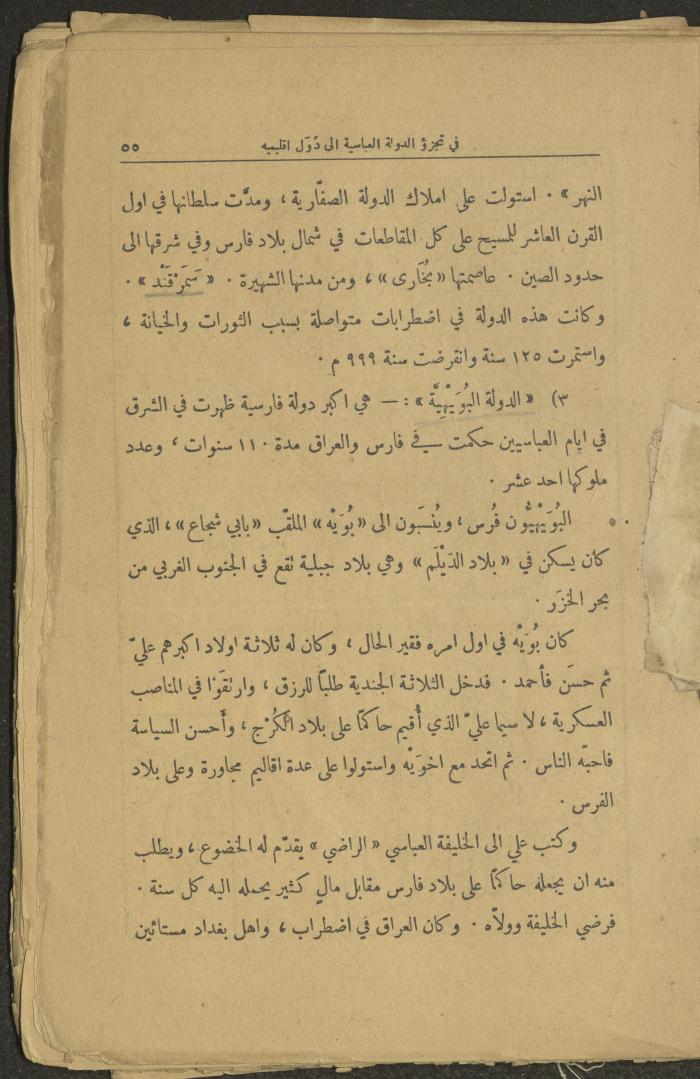 في تجزؤ الدولة العباسية الى دُوَل اقليميه ٥٥
النهر» · استولت على املاك الدولة الصفّارية ، ومدَّت سلطانها في اول
القرن العاشر للمسيح على كل المقاطعات في شمال بلاد فارس وفي شرقها الى
حدود الصين · عاصمتها «بُخَارى» ، ومن مدنها الشهيرة · «سَمَرْقَنْد» ·
وكانت هذه الدولة في اضطرابات متواصلة بسبب الثورات والخيانة ،
واستمرت ١٢٥ سنة وانقرضت سنة ٩٩٩ م ·
٣) «الدولة البُوَيْهِيَّة» : — هي اكبر دولة فارسية ظهرت في الشرق
في ايام العباسيين حكمت في فارس والعراق مدة ١١٠ سنوات ، وعدد
ملوكها احد عشر ·
البُوَيْهيُّون فُرس ، ويُنسَبون الى «بُوَيْه» الملقّب «بابي شجاع» ، الذي
كان يسكن في «بلاد الدَيْلَم» وهي بلاد جبلية تقع في الجنوب الغربي من
بحر الخزَر ·
كان بُوَيْه في اول امره فقير الحال ، وكان له ثلاثة اولاد اكبرهم عليّ
ثم حسَن فأحمد · فدخل الثلاثة الجندية طلبًا للرزق ، وارتقَوْا في المناصب
العسكرية ، لا سيما عليّ الذي أُقيم حاكمًا على بلاد الكُرْج ، وأَحسن السياسة
فاحبّه الناس · ثم اتحد مع اخوَيْه واستولوا على عدة اقاليم مجاورة وعلى بلاد
الفرس ·
وكتب علي الى الخليفة العباسي «الراضي» يقدّم له الخضوع ، ويطلب
منه ان يجعله حاكمًا على بلاد فارس مقابل مالٍ كثير يحمله اليه كل سنة ·
فرضي الخليفة وولاّه · وكان العراق في اضطراب ، واهل بغداد مستائين